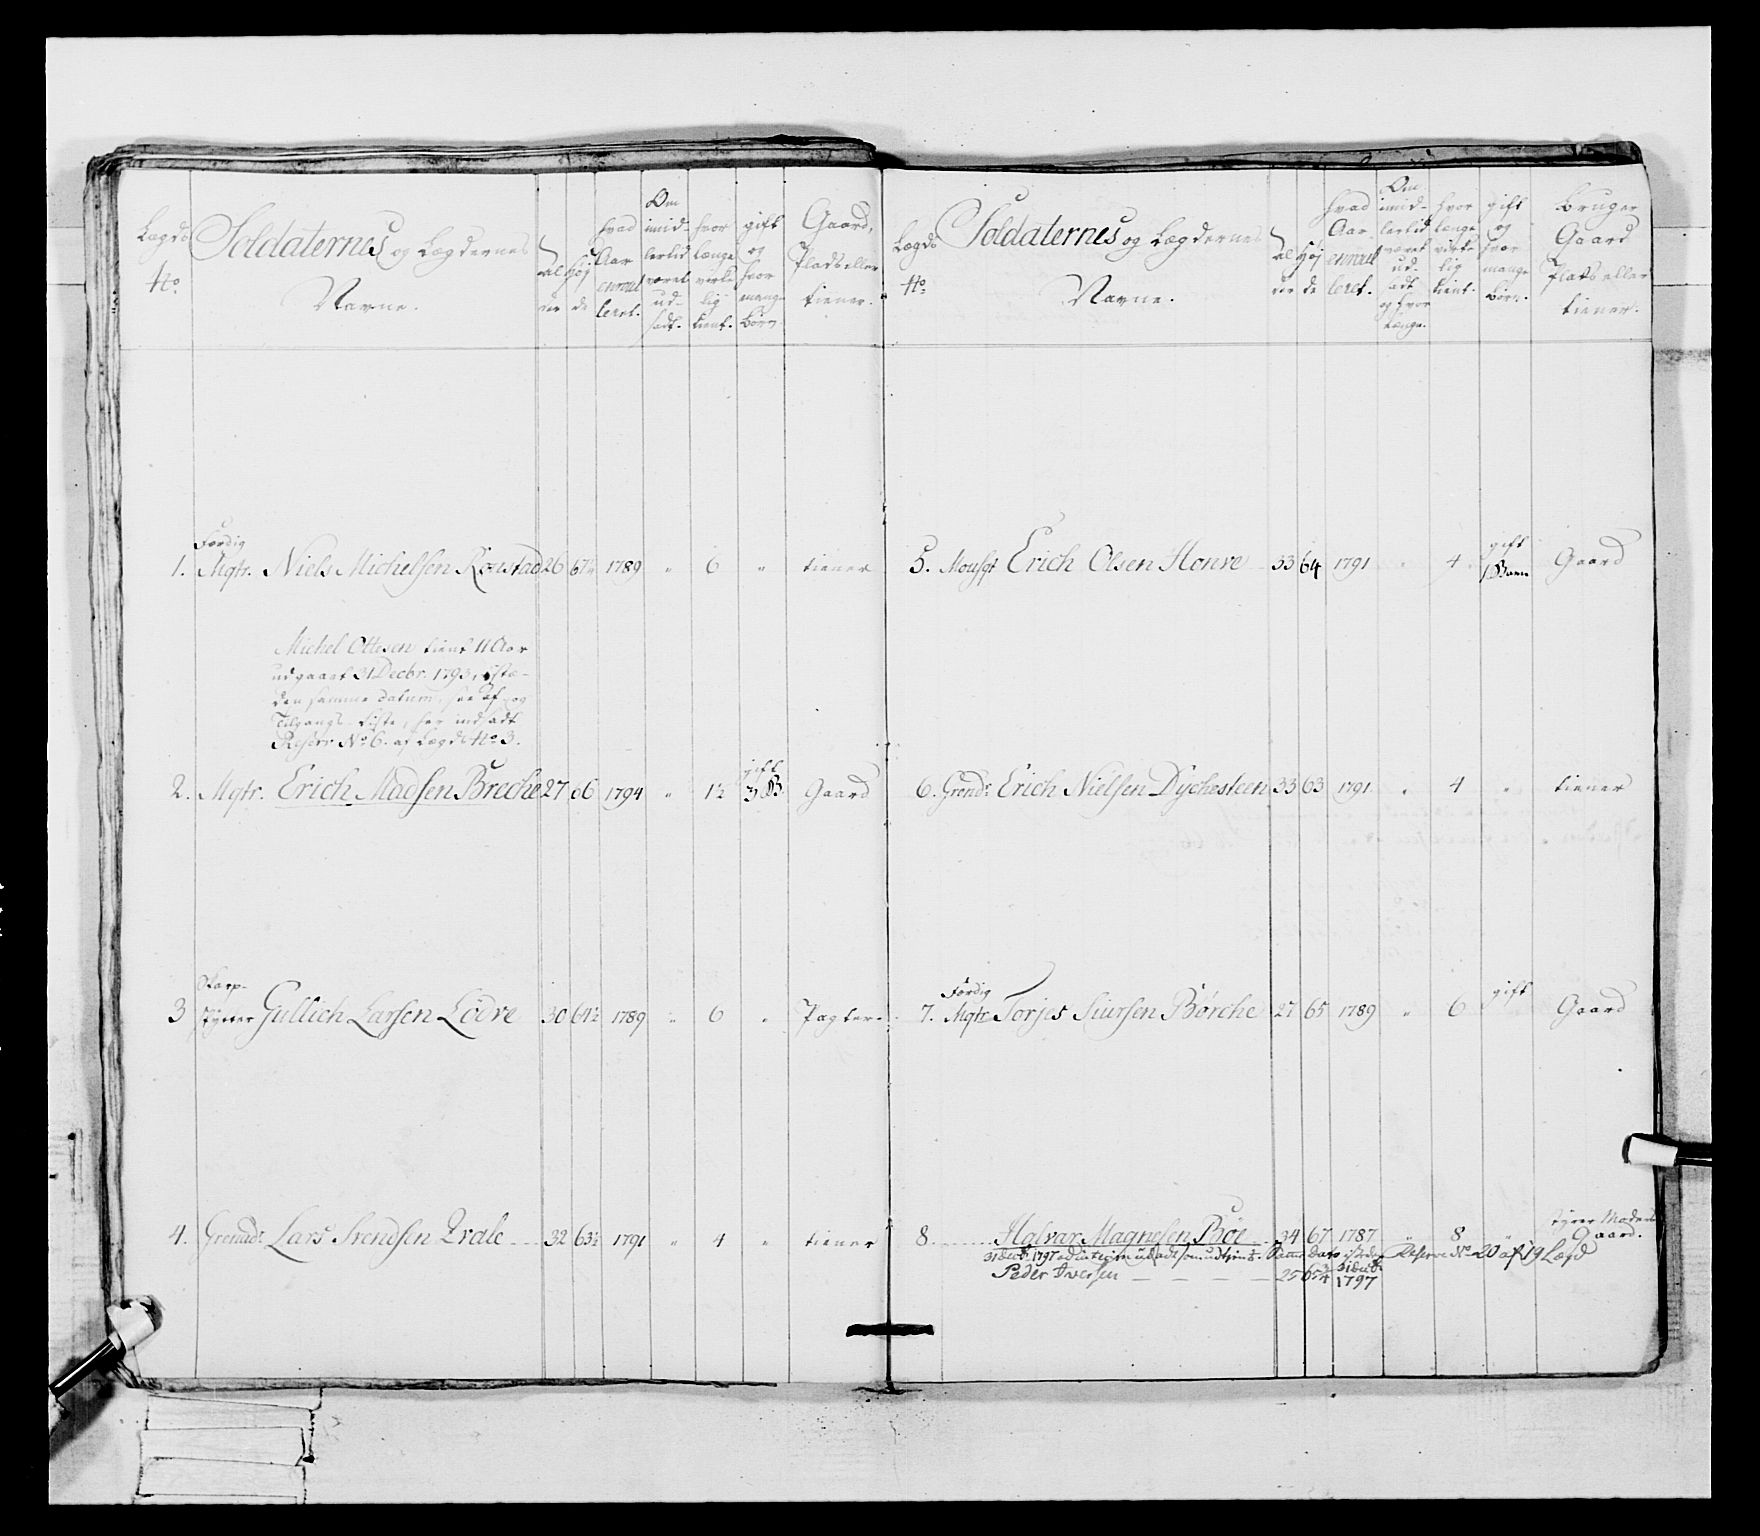 Lægds No. Soldaternes og Lægdernes Navne. Alder Høide hvad Aar enroulleret. Om imidlertid været udsadt. hvor længe virkelig tient. gift og hvor mange børn Gaard, Plads eller tiener.
1. Færdig Mqtr. Niels Michelsen Rønstad 26 67½ 1789 " 6 " tiener
Michel Ottesen tient 11 Aar
udgaaet 31 Decbr. 1793, istæ-
den samme datum, see af og
Tilgangs Liste, her indsadt
Reserv No 6. af Lægd No 3.
2. Mqtr. Erich Madsen Breche 27 66 1794 " 1½ gift 3 B. Gaard
3 Skarp- skytter Gullich Larsen Lødve 30 64½ 1789 " 6 " Pagter
4. Grenadr Lars Svendsen Qvale 32 63½ 1791 " 4 " tiener
Lægds No. Soldaternes og Lægdernes Navne. Alder Høide hvad Aar enroulleret. Om imidlertid været udsadt og hvor længe. hvor længe virkelig tient. gift og hvor mange børn. bruger Gaard Plads eller tiener.
5. Mousqt Erich Olsen Honve 33 64 1791 " 4 gift 1 Barn Gaard
6. Grendr Erich Nielsen Dychesteen 33 63 1791 " 4 " tiener
7. Færdig Mqtr Torjes Siursen Børche 27 65 1789 " 6 gift Gaard
8. Halvar Magnesen Bøe 34 67 1787 " 8 " styrer Moders Gaard.
31 decbr. 1797 udsadt som udtient. Samme dato isteden Reserve No 20 af 19 Lægd
Peder Iversen 25 65¾ 31 decbr 1797